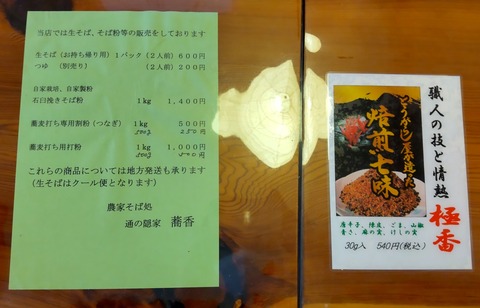 当店では生そば、そば粉等の販売をしております
生そば（お持ち帰り用）１パック（２人前）６００円
つゆ　（別売り）　（２人前）２００円
自家栽培、自家製粉
石臼挽きそば粉　１kg　１,４００円
蕎麦打ち専用割粉（つなぎ）　１kg　５００円
500g　250円
蕎麦打ち用打粉　１kg　１,０００円
500g　500円
これらの商品については地方発送も承ります
（生そばはクール便となります）
農家そば処
通の隠家　蕎香
職人の技と情熱
極香
とうがらし屋が造った
焙煎七味
唐辛子、陳皮、ごま、山椒
青さ、麻の実、けしの実
30g入　540円(税込)